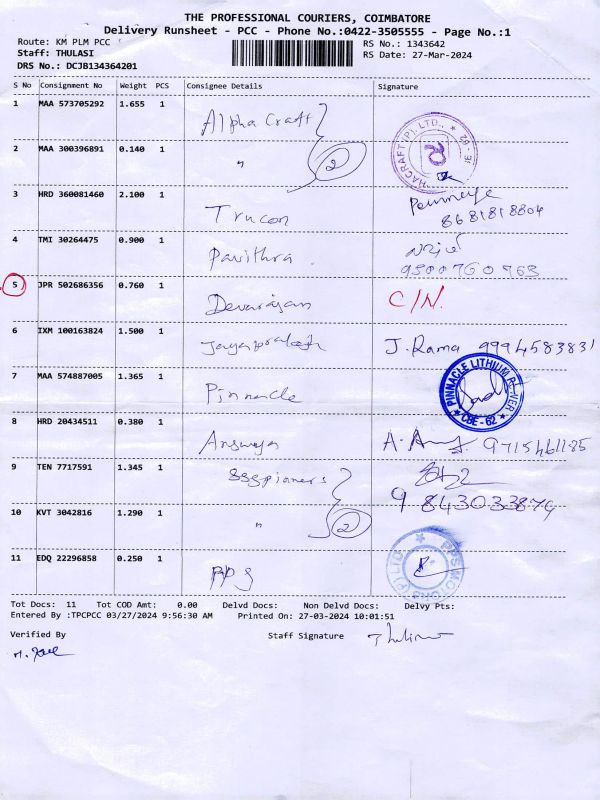 THE PROFESSIONAL COURIERS, COIMBATORE
Delivery Runsheet - PCC - Phone No.:0422-3505555 - Page No.:1
Route: KM PLM PCC
RS No.: 1343642
Staff: THULASI
RS Date: 27-Mar-2024
DRS No.: DCJB134364201
S No Consignment No Weight PCS Consignee Details Signature
1 MAA 573705292 1.655 1 Alpha Craft
2 MAA 300396891 0.140 1 " 2
3 HRD 360081460 2.100 1 Trucon 8681818804
4 TMI 30264475 0.900 1 Pavithra 9500760963
5 JPR 502686356 0.760 1 Devarajan C/N.
6 IXM 100163824 1.500 1 Jayaprakash J. Rama 9994583831
7 MAA 574887005 1.365 1 Pinnacle PINNACLE LITHIUM POWER ★ CBE - 62 ★
8 HRD 20434511 0.380 1 Answya A. 9715461185
9 TEN 7717591 1.345 1 SSSpioners 9843033874
10 KVT 3042816 1.290 1 " 2
11 EDQ 22296858 0.250 1 PPS PPS MOTORS (P) LTD ★
Tot Docs: 11 Tot COD Amt: 0.00 Delvd Docs: Non Delvd Docs: Delvy Pts:
Entered By :TPCPCC 03/27/2024 9:56:30 AM Printed On: 27-03-2024 10:01:51
Verified By Staff Signature